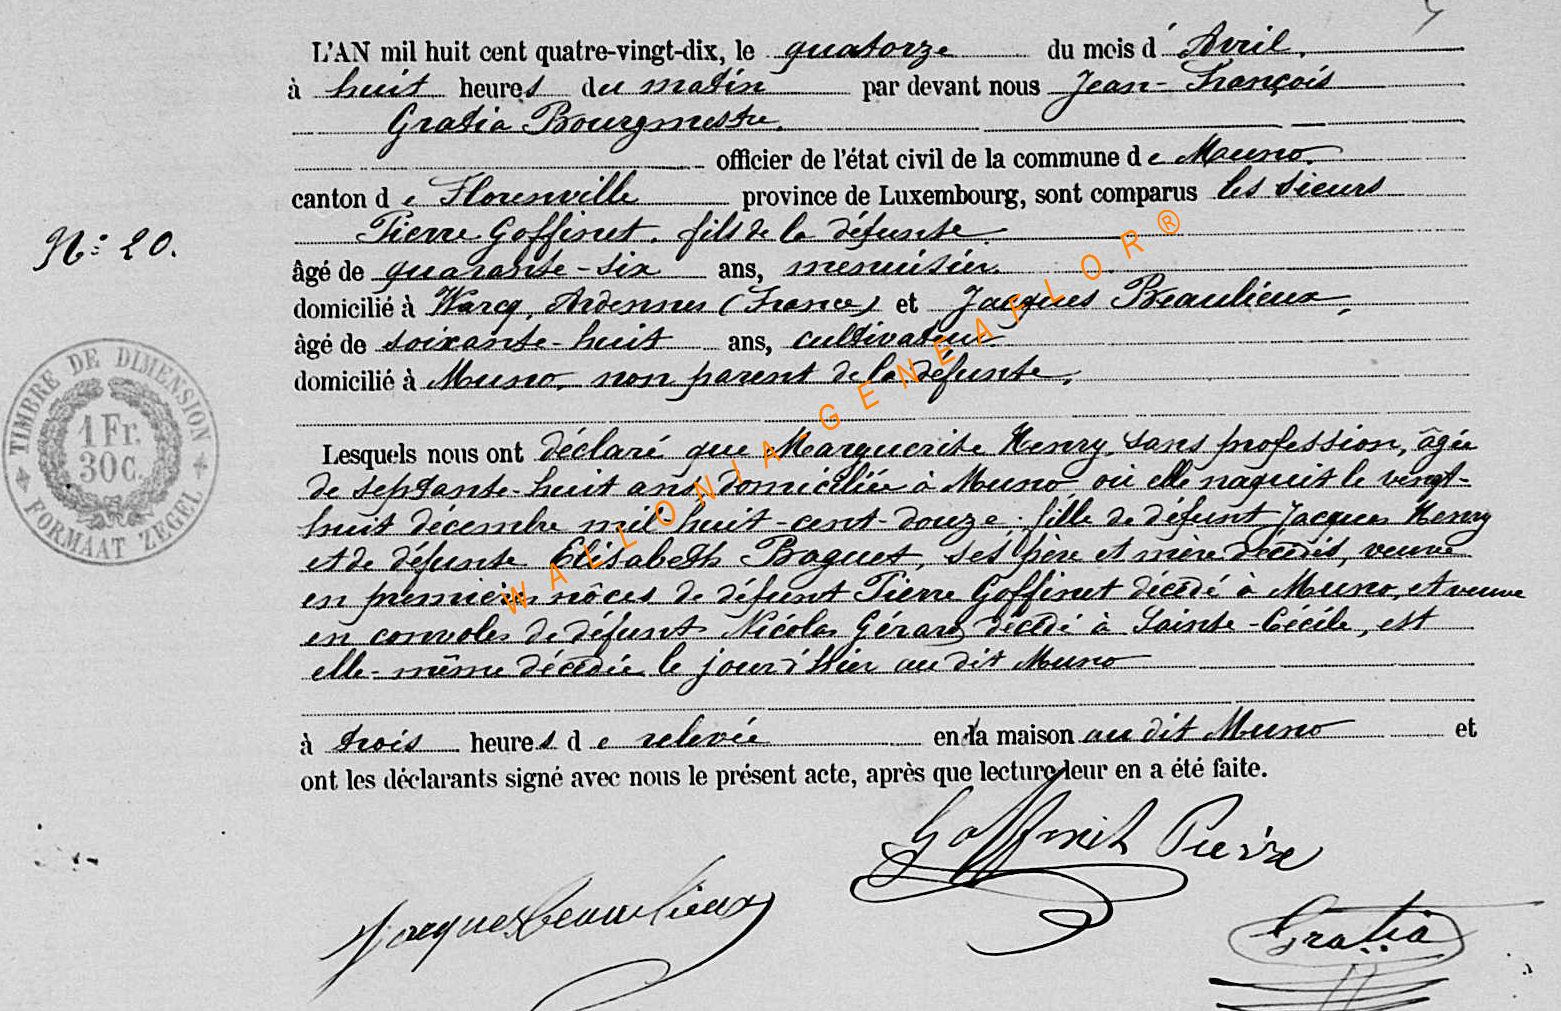 L'AN mil huit cent quatre-vingt-dix, le quatorze du mois d' Avril.
à huit heures du matin par devant nous Jean-François
Gratia Bourgmestre.
officier de l'état civil de la commune de Muno.
canton de Florenville province de Luxembourg, sont comparus les sieurs
Pierre Goffinet. fils de la défunte.
N° 20.
âgé de quarante-six ans, menuisier.
domicilié à Warcq, Ardennes (France) et Jacques Beaulieux,
âgé de soixante-huit ans, cultivateur.
domicilié à Muno, non parent de la défunte.
TIMBRE DE DIMENSION
1 Fr.
30 C.
FORMAAT ZEGEL
Lesquels nous ont déclaré que Marguerite Henry, sans profession, âgée
de septante-huit ans, domiciliée à Muno où elle naquit le vingt-
huit décembre mil-huit-cent-douze. fille de défunt Jacques Henry
et de défunte Elisabeth Baguet, ses père et mère décédés, veuve
en premières nôces de défunt Pierre Goffinet décédé à Muno, et veuve
en convoles de défunt Nicolas Gérard décédé à Sainte-Cécile, est
elle-même décédée le jour d'hier au dit Muno
à trois heures de relevée en la maison au dit Muno et
ont les déclarants signé avec nous le présent acte, après que lecture leur en a été faite.
Goffinet Pierre
Jacques Beaulieux
Gratia
WALLONIA GENEAFLOR®